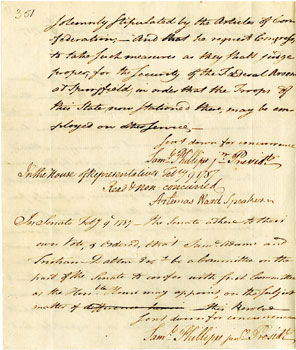 351
solemnly stipulated by the Articles of Con
federation, — And that he request Congress,
to take such measures as they shall judge
proper, for the security of the Federal Arsenal
at Springfield, in order that the Troops of
this State, now stationed there, may be em
ployed on other service, —
Sent down for concurrence
Saml. Phillips jr. Presidt.
In the House of Representatives Feby 9 1787
Read & non-concurred
Artemas Ward Speaker
In Senate Feby 9th 1787 — The Senate adhere to their
own Vote, & Ordered, that Saml. Adams and
Tristram Dalton Esqs be a Committee on the
part of the Senate to confer with such Committee
as the Honble House may appoint on the subject
matter of this Resolve
Sent down for concurrence
Saml. Phillips jun. Presidt.